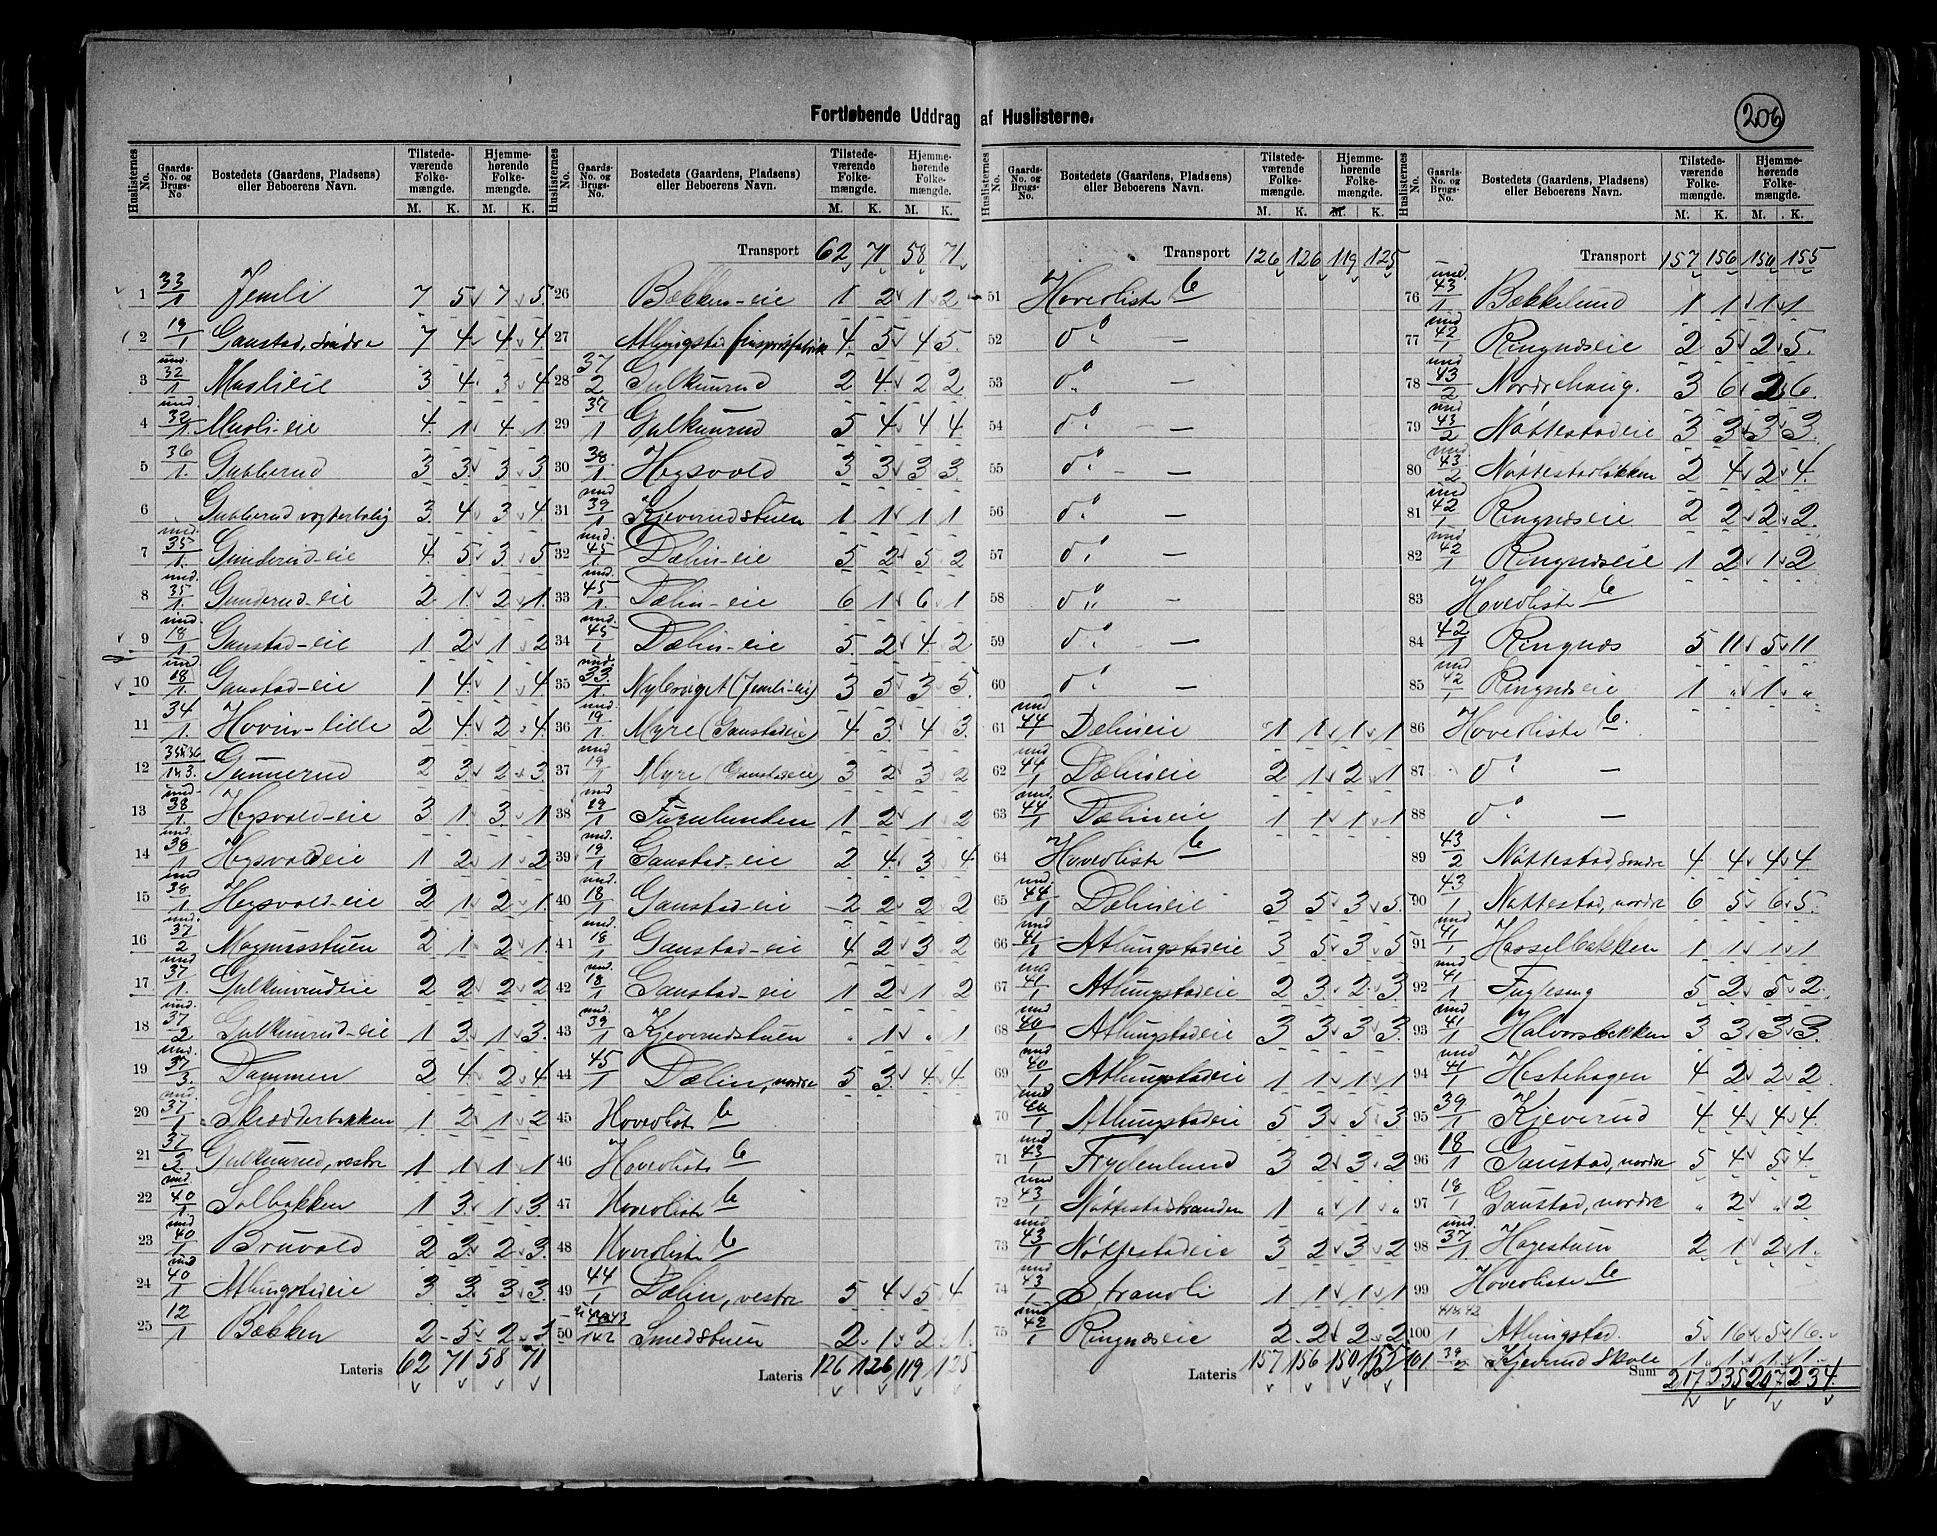 Fortløbende Uddrag af Huslisterne.
206
Huslisternes No. | Gaards-No. og Brugs-No. | Bostedets (Gaardens, Pladsens) eller Beboerens Navn. | Tilstedeværende Folkemængde. M. K. | Hjemmehørende Folkemængde. M. K.
1 33/1 Jemli 7 5 7 5
2 19/1 Ganstad, søndre 7 4 4 4
3 und. 32/1 Muslieie 3 4 3 4
4 und 32/1 Musli-eie 4 1 4 1
5 36/1 Gubberud 3 3 3 3
6 Gubberud vogterbolig 3 4 3 4
7 und. 35/1 Gunderud-eie 4 5 3 5
8 und. 35/1 Gunderud-eie 2 1 2 1
9 und. 18/1 Ganstad-eie 1 2 1 2
10 und 18/1 Ganstad-eie 1 4 1 4
11 34/1 Hovin-lille 2 4 2 4
12 35&36/1&3 Gunnerud 2 3 2 3
13 und. 38/1 Hegsvold-eie 3 1 3 1
14 und. 38/1 Hegsvoldeie 1 2 1 2
15 und 38/1 Hegsvold-eie 2 1 2 1
16 und. 37/2 Magnusstuen 2 1 2 1
17 und 37/1 Gulkunrudeie 2 2 2 2
18 und. 37/2 Gulkunrud-eie 1 3 1 3
19 und. 37/3 Dammen 2 4 2 4
20 und. 37/1 Skrædderbakken 1 2 1 2
21 37/3 Gulkunrud, vestre 1 1 1 1
22 und 40/1 Solbakken 1 3 1 3
23 und 40/1 Bruvold 2 3 2 3
24 und 40/1 Athungstadeie 3 3 3 3
25 12/1 Bækken 2 5 2 3
Lateris 62 71 58 71
Transport 62 71 58 71
26 Bækken-eie 1 2 1 2
27 Athungstad finspritfabrik 4 5 4 5
28 37/2 Gulkunrud 2 4 2 2
29 37/1 Gulkunrud 5 4 4 4
30 38/1 Hegsvold 3 3 3 3
31 und 39/1 Kjeverudstuen 1 1 1 1
32 und. 45/1 Dælin-eie 5 2 5 2
33 und. 45/1 Dælin-eie 6 1 6 1
34 und. 45/1 Dælin-eie 5 2 4 2
35 und. 33/1 Nybrøtet (Jemli-eie) 3 5 3 5
36 und. 19/1 Myre (Ganstadeie) 4 3 4 3
37 und 19/1 Myre (Ganstadeie) 3 2 3 2
38 und 19/1 Furulunden 1 2 1 2
39 und. 19/1 Ganstad-eie 2 4 3 4
40 und. 18/1 Ganstad-eie 2 2 2 2
41 und 18/1 Ganstad-eie 4 2 3 2
42 und. 18/1 Ganstad-eie 1 2 1 2
43 und. 39/1 Kjeverudstuen „ 1 „ 1
44 45/1 Dælin, nordre 5 3 4 4
45 Hovedliste 6
46 Hovedliste 6
47 Hovedliste 6
48 Hovedliste 6
49 44/1 Dælin, vestre 5 4 5 4
50 42&43/1&2 Smedstuen 2 1 2 1
Lateris 126 126 119 125
Transport 126 126 119 125
51 Hovedliste 6
52 do —
53 do —
54 do —
55 do —
56 do —
57 do —
58 do —
59 do —
60 do —
61 und 44/1 Dælineie 1 1 1 1
62 und 44/1 Dælineie 2 1 2 1
63 und. 44/1 Dælineie 1 1 1 1
64 Hovedliste 6
65 und. 44/1 Dælineie 3 5 3 5
66 und 41/1 Athungstadeie 3 5 3 5
67 und 41/1 Athungstadeie 2 3 2 3
68 und 40/1 Athungstadeie 3 3 3 3
69 und 40/1 Athungstadeie 1 1 1 1
70 und 40/1 Athungstadeie 5 3 5 3
71 und 43/1 Frydenlund 3 2 3 2
72 und 43/1 Nøttestadstranden 1 „ 1 „
73 und 43/1 Nøttestadeie 3 2 3 2
74 und 43/1 Strandli 1 1 1 1
75 und 42/1 Ringnæseie 2 2 2 2
Lateris 157 156 150 155
Transport 157 156 150 155
76 und. 43/1 Bækkelund 1 1 1 1
77 und 42/1 Ringnæseie 2 5 2 5
78 und 43/2 Nordrehaug. 3 6 2 6
79 und 43/2 Nøttestadeie 3 3 3 3
80 und 43/2 Nøttestadbakken 2 4 2 4
81 und 42/1 Ringnæseie 2 2 2 2
82 und 42/1 Ringnæseie 1 2 1 2
83 Hovedliste 6
84 42/1 Ringnæs 5 11 5 11
85 und 42/1 Ringnæseie 1 „ 1 „
86 Hovedliste 6.
87 do —
88 do —
89 43/2 Nøttestad, søndre 4 4 4 4
90 43/1 Nøttestad, nordre 6 5 6 5
91 und 41/1 Hasselbakken 1 1 1 1
92 und 41/1 Fuglesang 5 2 5 2
93 und 41/1 Halvorsbakken 3 3 3 3
94 und 41/1 Hestehagen 4 2 2 2
95 39/1 Kjeverud 4 4 4 4
96 18/1 Ganstad, nordre 5 4 5 4
97 18/1 Ganstad, nordre „ 2 „ 2
98 und. 37/1 Hagestuen 2 1 2 1
99 Hovedliste 6
100 41&42/1 Athungstad. 5 16 5 16
101 39/2 Kjeverud Skole 1 1 1 1
Sum 217 235 207 234